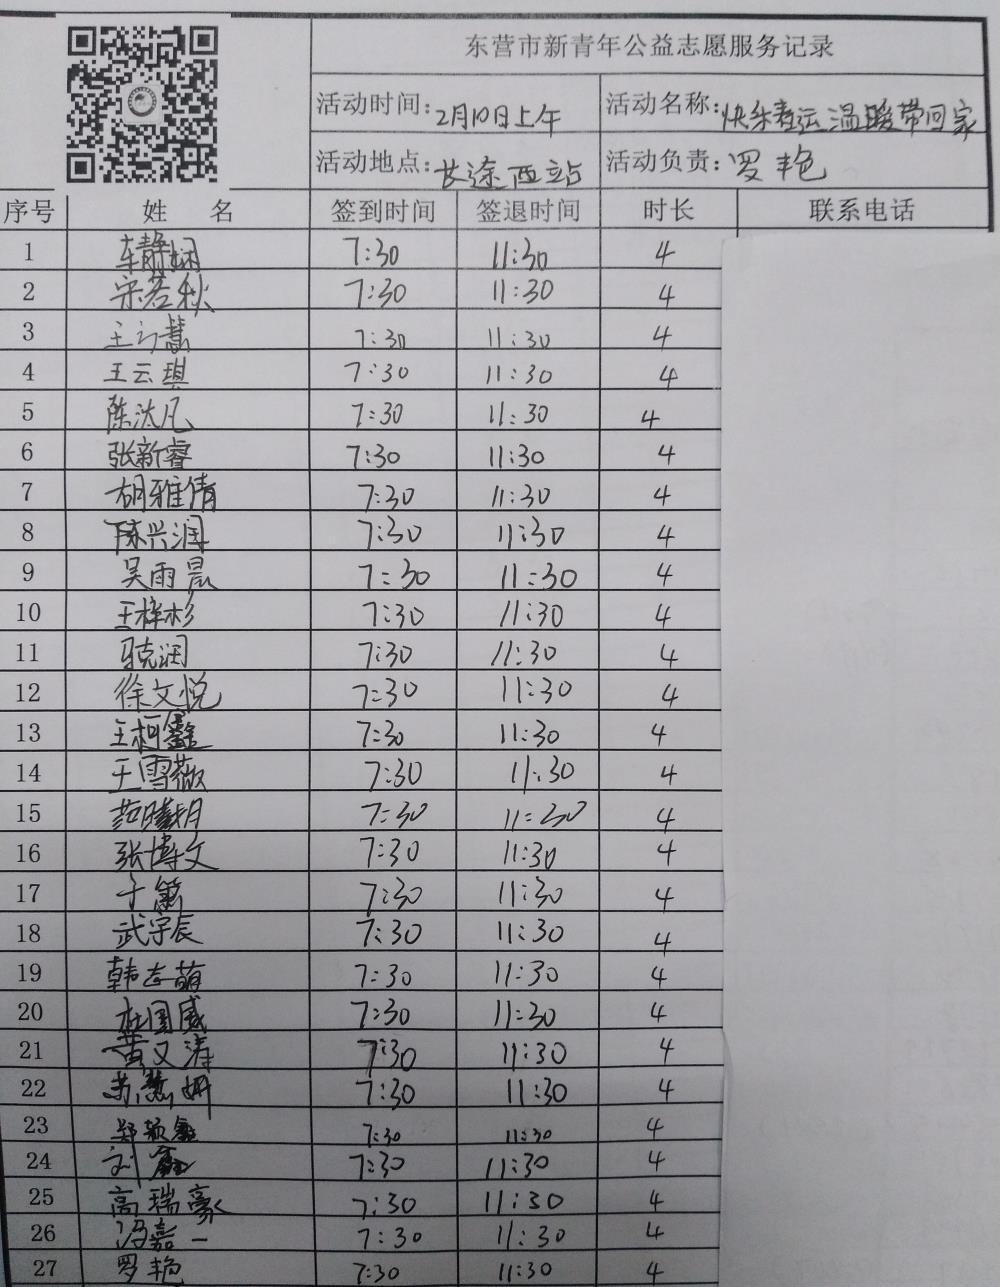 东营市新青年公益志愿服务记录
活动时间:2月10日上午 活动名称:快乐春运温暖带回家
活动地点:长途西站 活动负责:罗艳
序号 姓 名 签到时间 签退时间 时长 联系电话
1 车静娴 7:30 11:30 4
2 宋若秋 7:30 11:30 4
3 王 慧 7:30 11:30 4
4 王云琪 7:30 11:30 4
5 陈汰凡 7:30 11:30 4
6 张新睿 7:30 11:30 4
7 胡雅倩 7:30 11:30 4
8 陈兴润 7:30 11:30 4
9 吴雨晨 7:30 11:30 4
10 王梓杉 7:30 11:30 4
11 克润 7:30 11:30 4
12 徐文悦 7:30 11:30 4
13 王柯鑫 7:30 11:30 4
14 王雪薇 7:30 11:30 4
15 范 7:30 11:30 4
16 张博文 7:30 11:30 4
17 于 7:30 11:30 4
18 武宇辰 7:30 11:30 4
19 韩志萌 7:30 11:30 4
20 杜国威 7:30 11:30 4
21 黄文涛 7:30 11:30 4
22 苏慧妍 7:30 11:30 4
23 郑颖鑫 7:30 11:30 4
24 刘鑫 7:30 11:30 4
25 高瑞豪 7:30 11:30 4
26 冯嘉一 7:30 11:30 4
27 罗艳 7:30 11:30 4